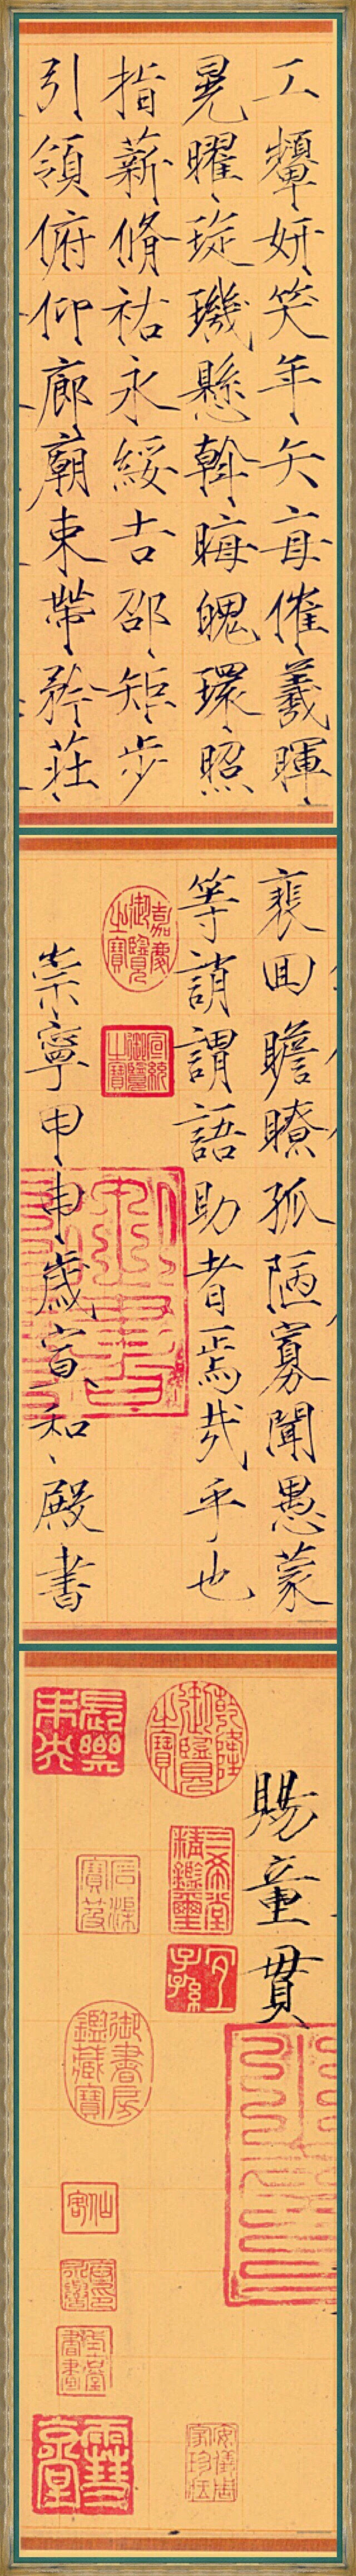 工顰妍笑年矢每催羲暉
晃曜琁璣懸斡晦魄環照
指薪脩祐永綏吉邵矩步
引領俯仰廊廟束帶矜莊
裵囬瞻瞭孤陋寡聞愚蒙
等誚謂語助者焉哉乎也
嘉慶御覽之寶
宣統御覽之寶
崇寧甲申歲宣和殿書
賜童貫
乾隆御覽之寶
三希堂精鑑璽
宜子孫
安儀周家珍藏
長樂未央
石渠寶笈
御書房鑑藏寶
仙客